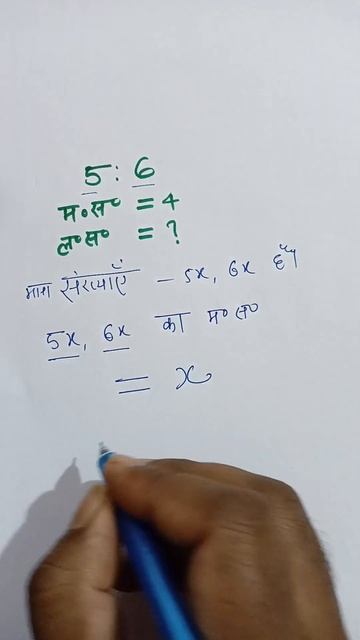 5 : 6
म०स० = 4
ल०स० = ?
माना संख्याएँ – 5x, 6x हैं।
5x, 6x का म० स०
= x